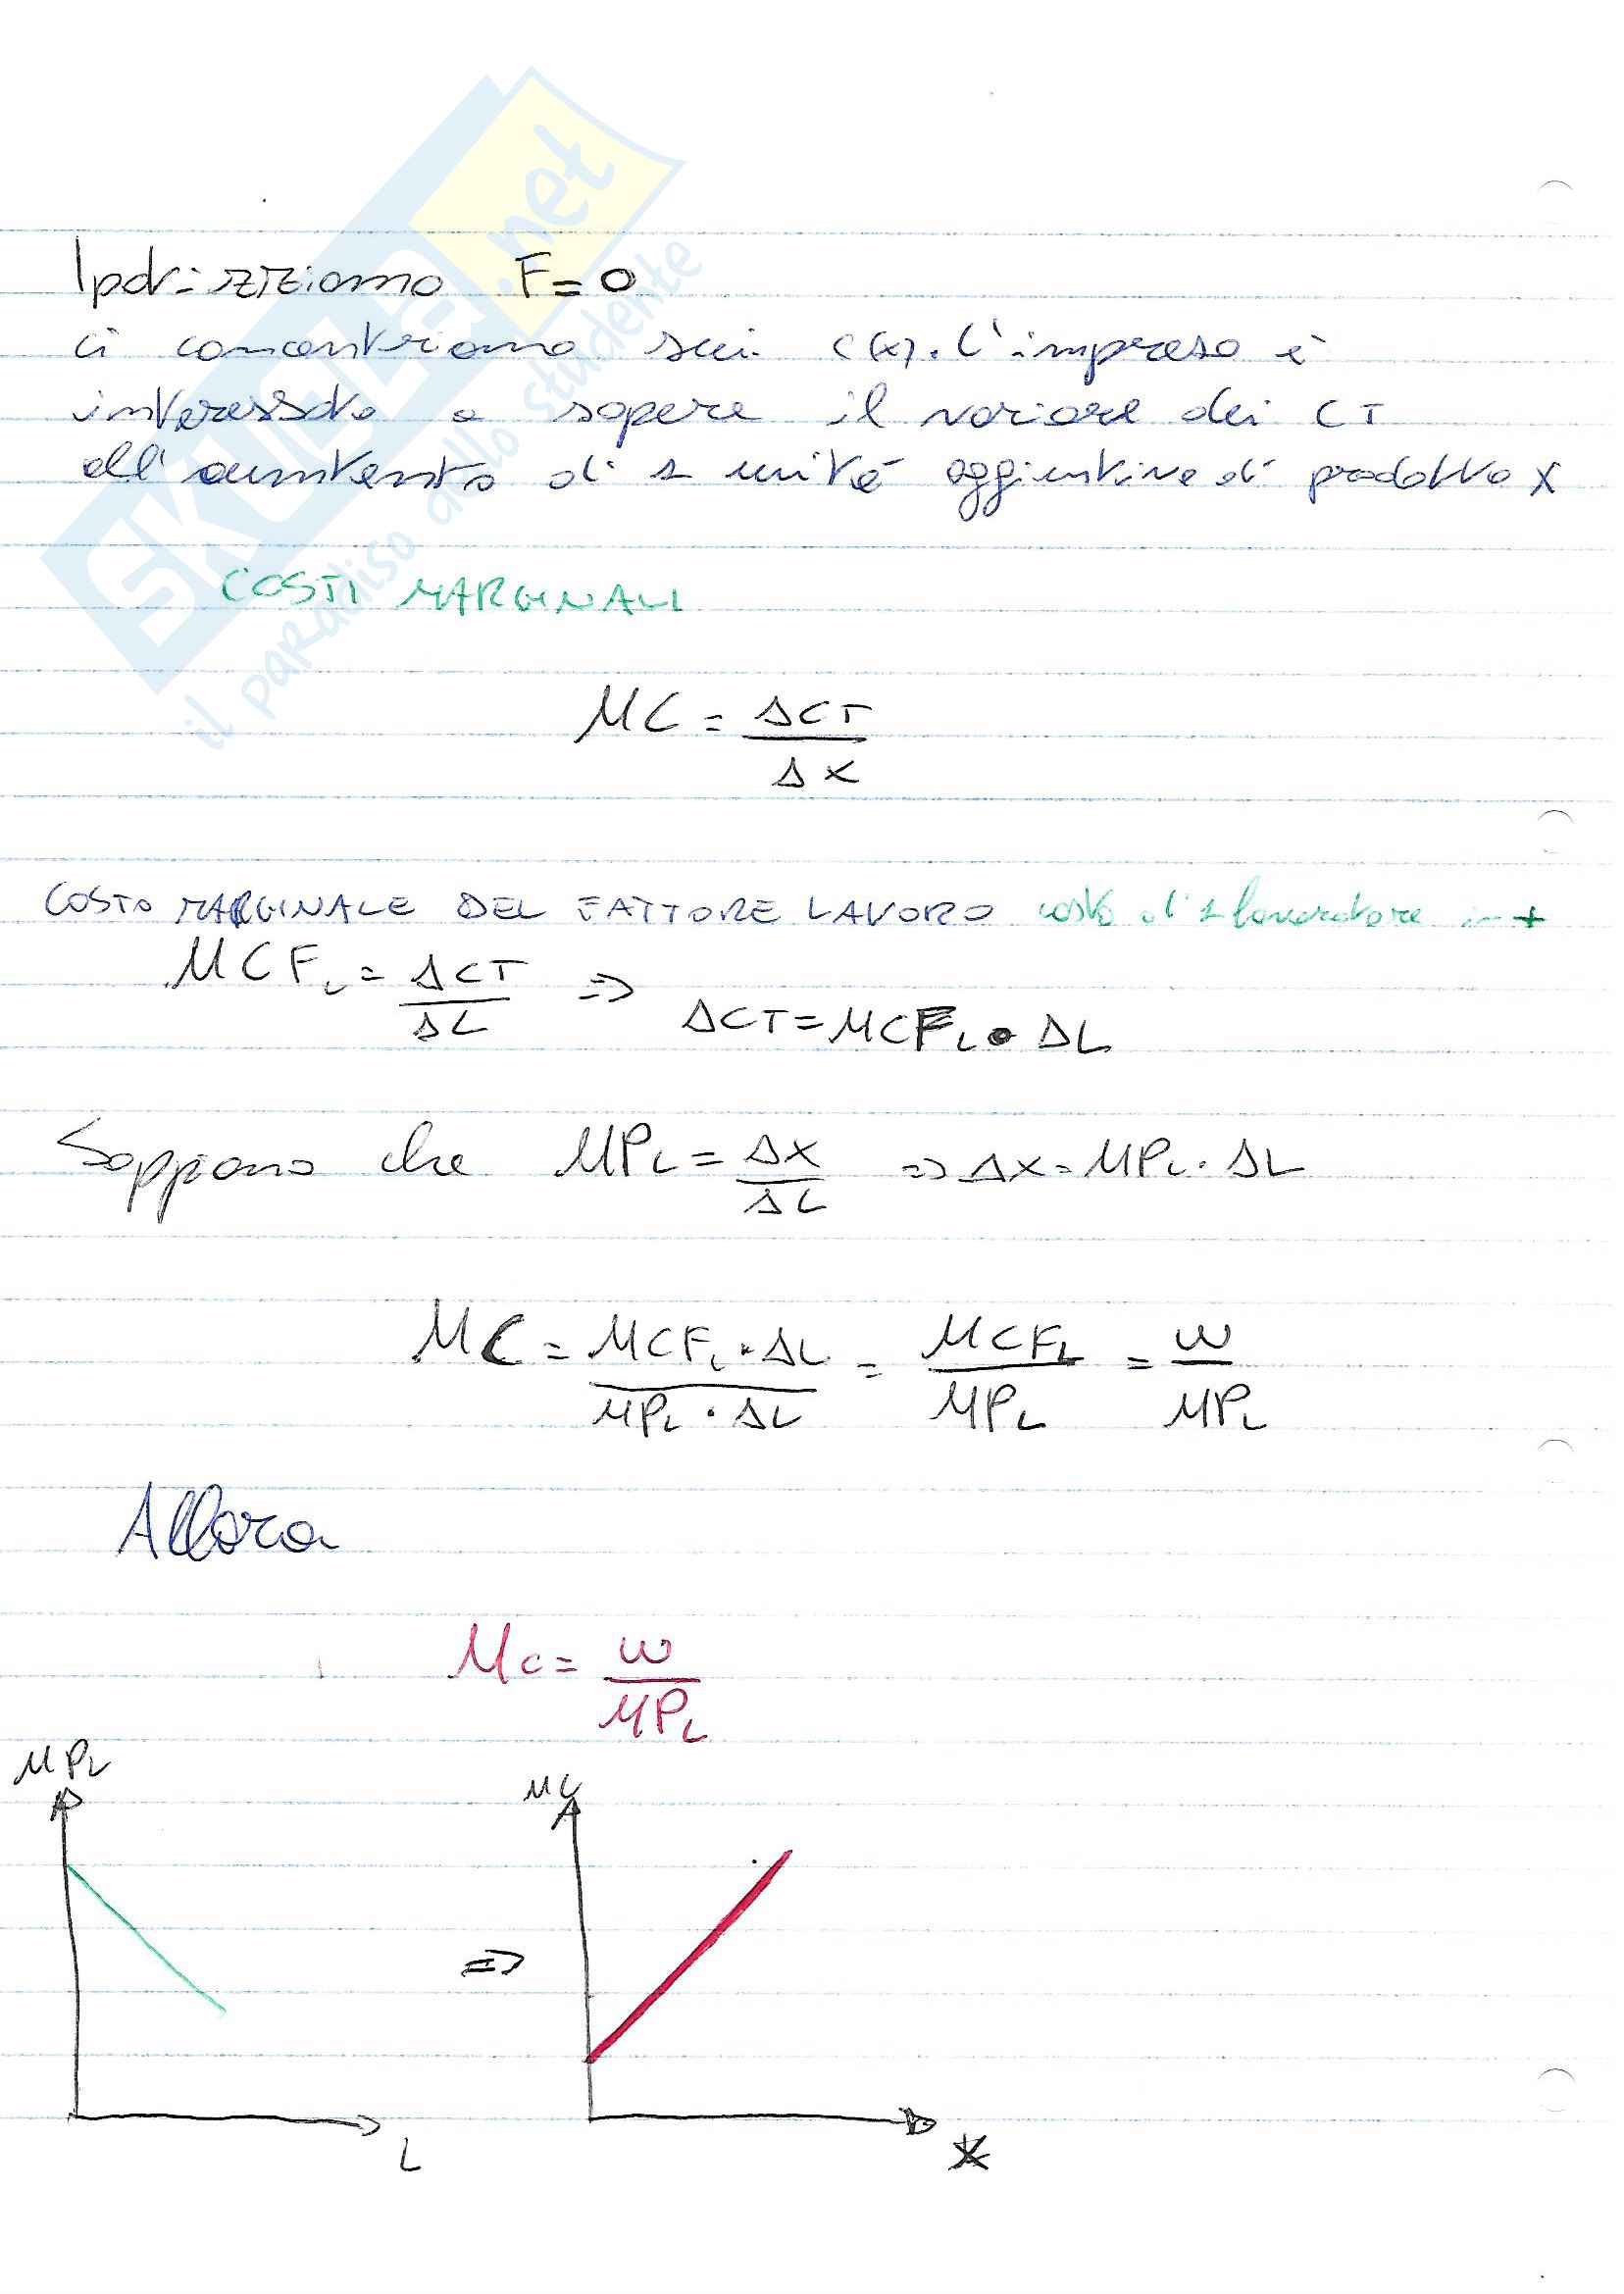 Ipotizziamo F=0
ci concentriamo sui c(x). L'impresa è
interessata a sapere il variare dei CT
all'aumento di 1 unità aggiuntiva di prodotto X
COSTI MARGINALI
MC = ΔCT / ΔX
COSTO MARGINALE DEL FATTORE LAVORO costo di 1 lavoratore in +
MCF_L = ΔCT / ΔL => ΔCT = MCF_L • ΔL
Sappiamo che MP_L = ΔX / ΔL => ΔX = MP_L · ΔL
MC = MCF_L · ΔL / MP_L · ΔL = MCF_L / MP_L = w / MP_L
Allora
Mc = w / MP_L
MP_L
MC
=>
L
X
SKUOLA.net
il paradiso dello studente